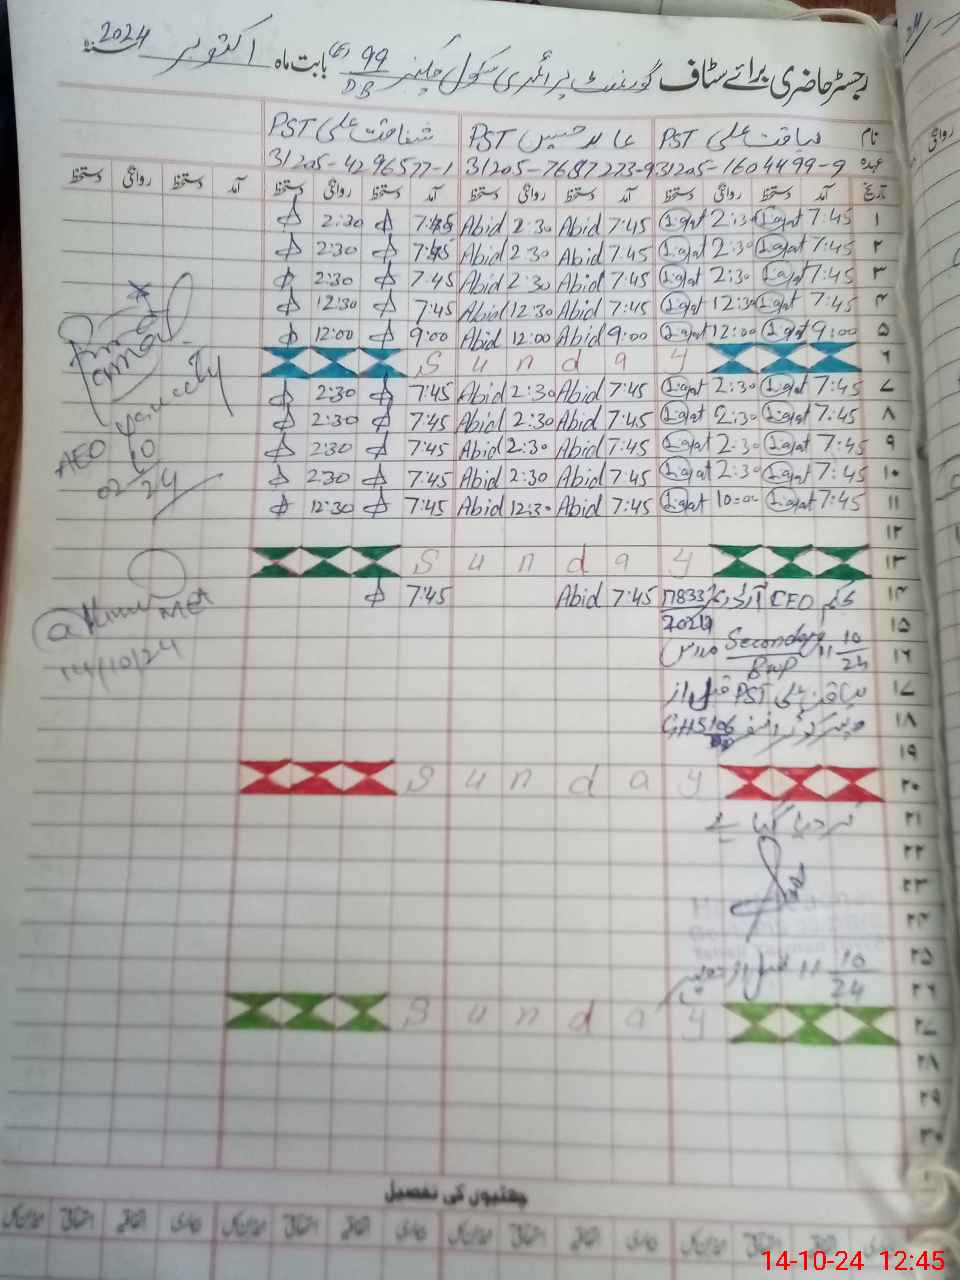 رجسٹر حاضری برائے سٹاف گورنمنٹ پرائمری سکول چکنمبر 99/DB (E) بابت ماہ اکتوبر سنہ 2024
نام لیاقت علی PST عابد حسین PST شفاقت علی PST
عہدہ 31205-1604499-9 31205-7687273-9 31205-4296577-1
تاریخ آمد دستخط روانگی دستخط آمد دستخط روانگی دستخط آمد دستخط روانگی دستخط آمد دستخط روانگی دستخط
۱ 7:45 Liaqat 2:30 Liaqat 7:45 Abid 2:30 Abid 7:45 2:30
۲ 7:45 Liaqat 2:30 Liaqat 7:45 Abid 2:30 Abid 7:45 2:30
۳ 7:45 Liaqat 2:30 Liaqat 7:45 Abid 2:30 Abid 7:45 2:30
۴ 7:45 Liaqat 12:30 Liaqat 7:45 Abid 12:30 Abid 7:45 12:30
۵ 9:00 Liaqat 12:00 Liaqat 9:00 Abid 12:00 Abid 9:00 12:00
۶ Sunday
۷ 7:45 Liaqat 2:30 Liaqat 7:45 Abid 2:30 Abid 7:45 2:30
۸ 7:45 Liaqat 2:30 Liaqat 7:45 Abid 2:30 Abid 7:45 2:30
۹ 7:45 Liaqat 2:30 Liaqat 7:45 Abid 2:30 Abid 7:45 2:30
۱۰ 7:45 Liaqat 2:30 Liaqat 7:45 Abid 2:30 Abid 7:45 2:30
۱۱ 7:45 Liaqat 10:00 Liaqat 7:45 Abid 12:30 Abid 7:45 12:30
AEO
02/10/24
۱۲
۱۳ Sunday
۱۴ حکم CEO آرڈر 17833 7:45 Abid 7:45
MEA
14/10/24
۱۵
۱۶ 11 10/24 Secondary/BWP
۱۷ لیاقت علی PST قبل از
۱۸ دوپہر GHS 106
۱۹
۲۰ Sunday
۲۱ کر دیا گیا ہے
۲۲
۲۳
۲۴
۲۵
۲۶ 11 10/24 قبل از دوپہر
۲۷ Sunday
۲۸
۲۹
۳۰
چھٹیوں کی تفصیل
14-10-24 12:45